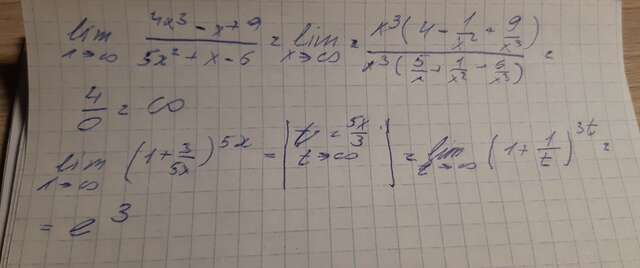 lim x→∞ (4x³ - x + 9)/(5x² + x - 6) = lim x→∞ = x³(4 - 1/x² + 9/x³)/x³(5/x + 1/x² - 6/x³) =
4/0 = ∞
lim x→∞ (1 + 3/5x)^5x = | t = 5x/3 t→∞ | = lim t→∞ (1 + 1/t)^3t =
= e³